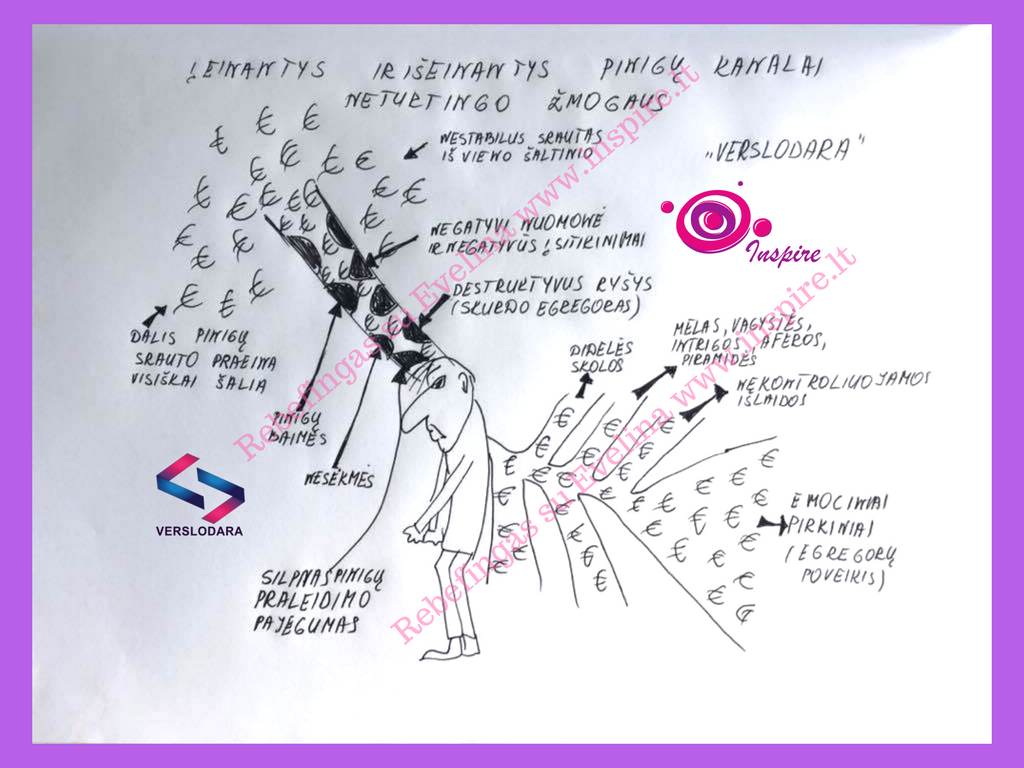 ĮEINANTYS IR IŠEINANTYS PINIGŲ KANALAI
NETURTINGO ŽMOGAUS
NESTABILUS SRAUTAS
IŠ VIENO ŠALTINIO
„VERSLODARA"
Inspire
NEGATYVI NUOMONĖ
IR NEGATYVŪS ĮSITIKINIMAI
DESTRUKTYVUS RYŠYS
(SKURDO EGREGORAS)
DALIS PINIGŲ
SRAUTO PRAEINA
VISIŠKAI ŠALIA
PINIGŲ
BAIMĖS
NESĖKMĖS
DIDELĖS
SKOLOS
MELAS, VAGYSTĖS,
INTRIGOS, AFEROS,
PIRAMIDĖS
NEKONTROLIUOJAMOS
IŠLAIDOS
EMOCINIAI
PIRKINIAI
(EGREGORŲ
POVEIKIS)
VERSLODARA
SILPNAS PINIGŲ
PRALEIDIMO
PAJĖGUMAS
Rebefingas su Evelina www.inspire.lt
Rebefingas su Evelina www.inspire.lt